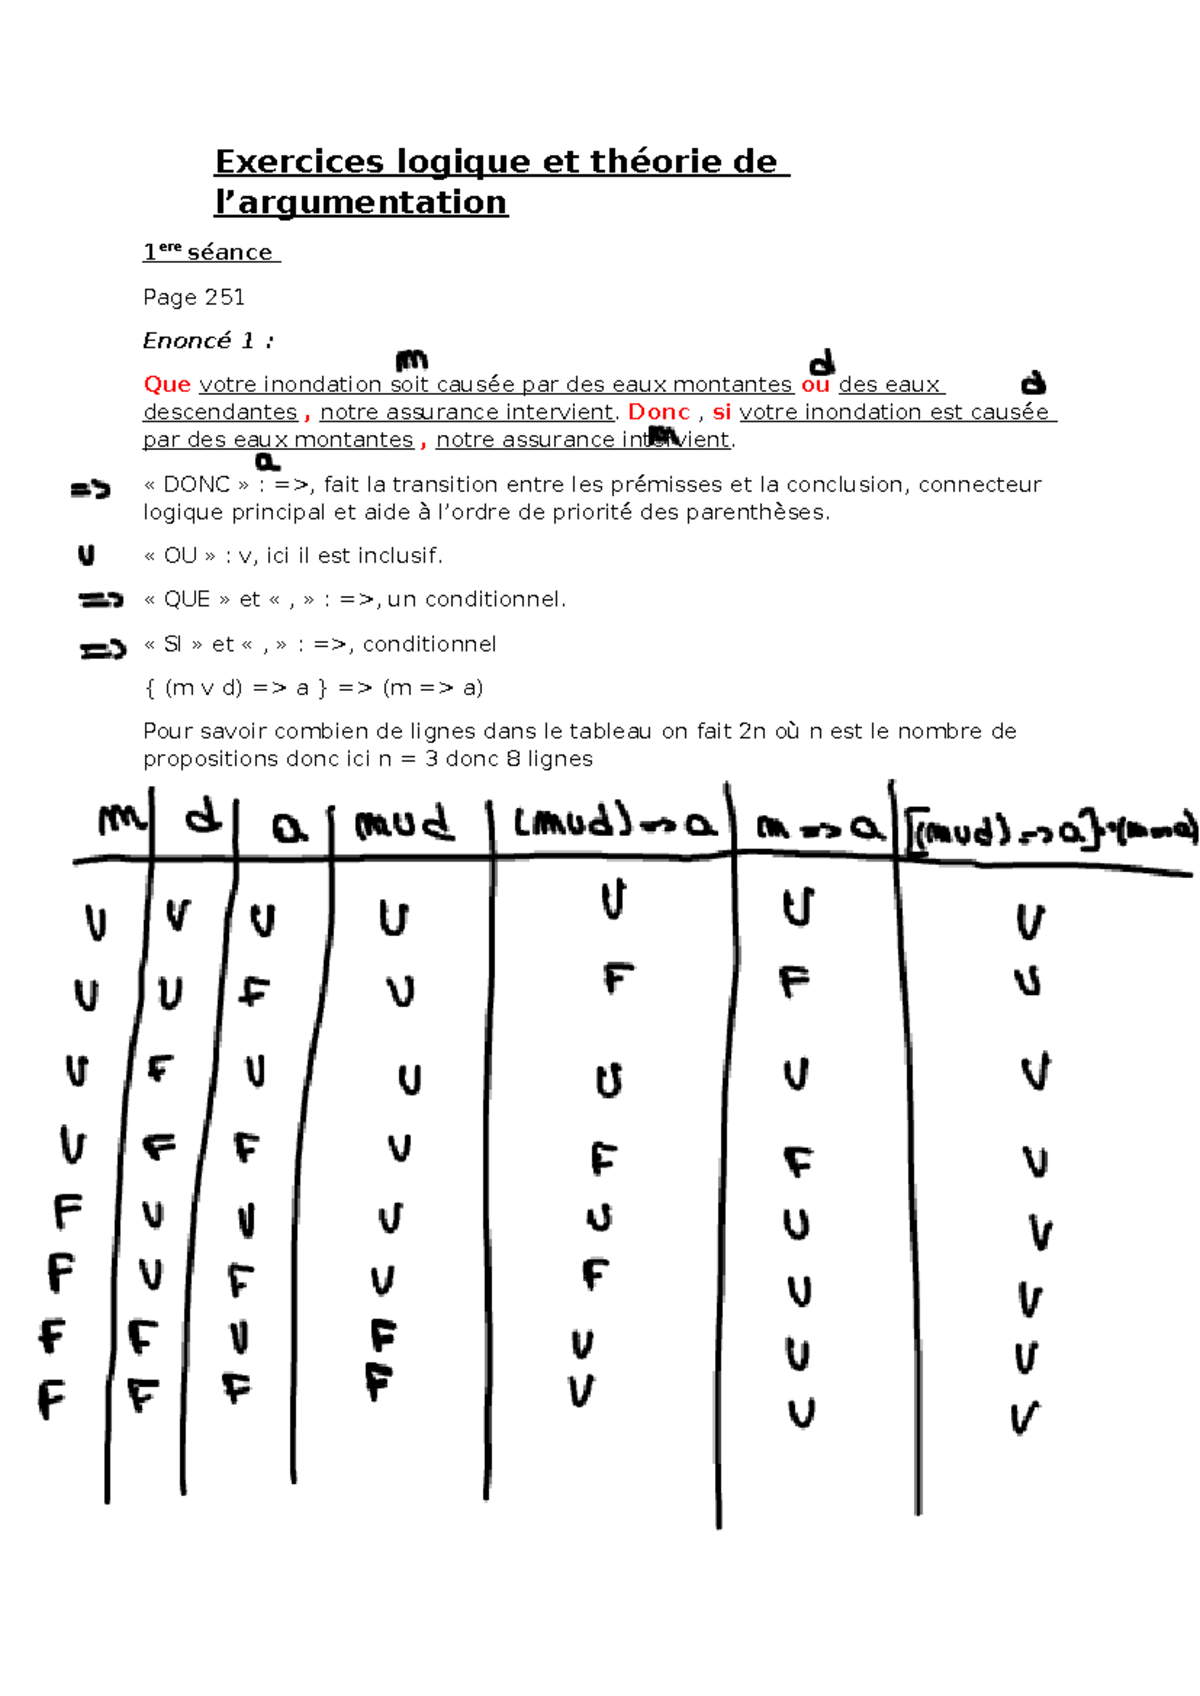 Exercices logique et théorie de
l’argumentation
1ere séance
Page 251
Enoncé 1 :
m d
Que votre inondation soit causée par des eaux montantes ou des eaux d
descendantes , notre assurance intervient. Donc , si votre inondation est causée
par des eaux montantes , notre assurance intervient. m
a
=> « DONC » : =>, fait la transition entre les prémisses et la conclusion, connecteur
logique principal et aide à l’ordre de priorité des parenthèses.
v « OU » : v, ici il est inclusif.
=> « QUE » et « , » : =>, un conditionnel.
=> « SI » et « , » : =>, conditionnel
{ (m v d) => a } => (m => a)
Pour savoir combien de lignes dans le tableau on fait 2n où n est le nombre de
propositions donc ici n = 3 donc 8 lignes
m d a mvd (mvd)=>a m=>a [(mvd)=>a]=>(m=>a)
V V V V V V V
V V F V F F V
V F V V V V V
V F F V F F V
F V V V V V V
F V F V F V V
F F V F V V V
F F F F V V V